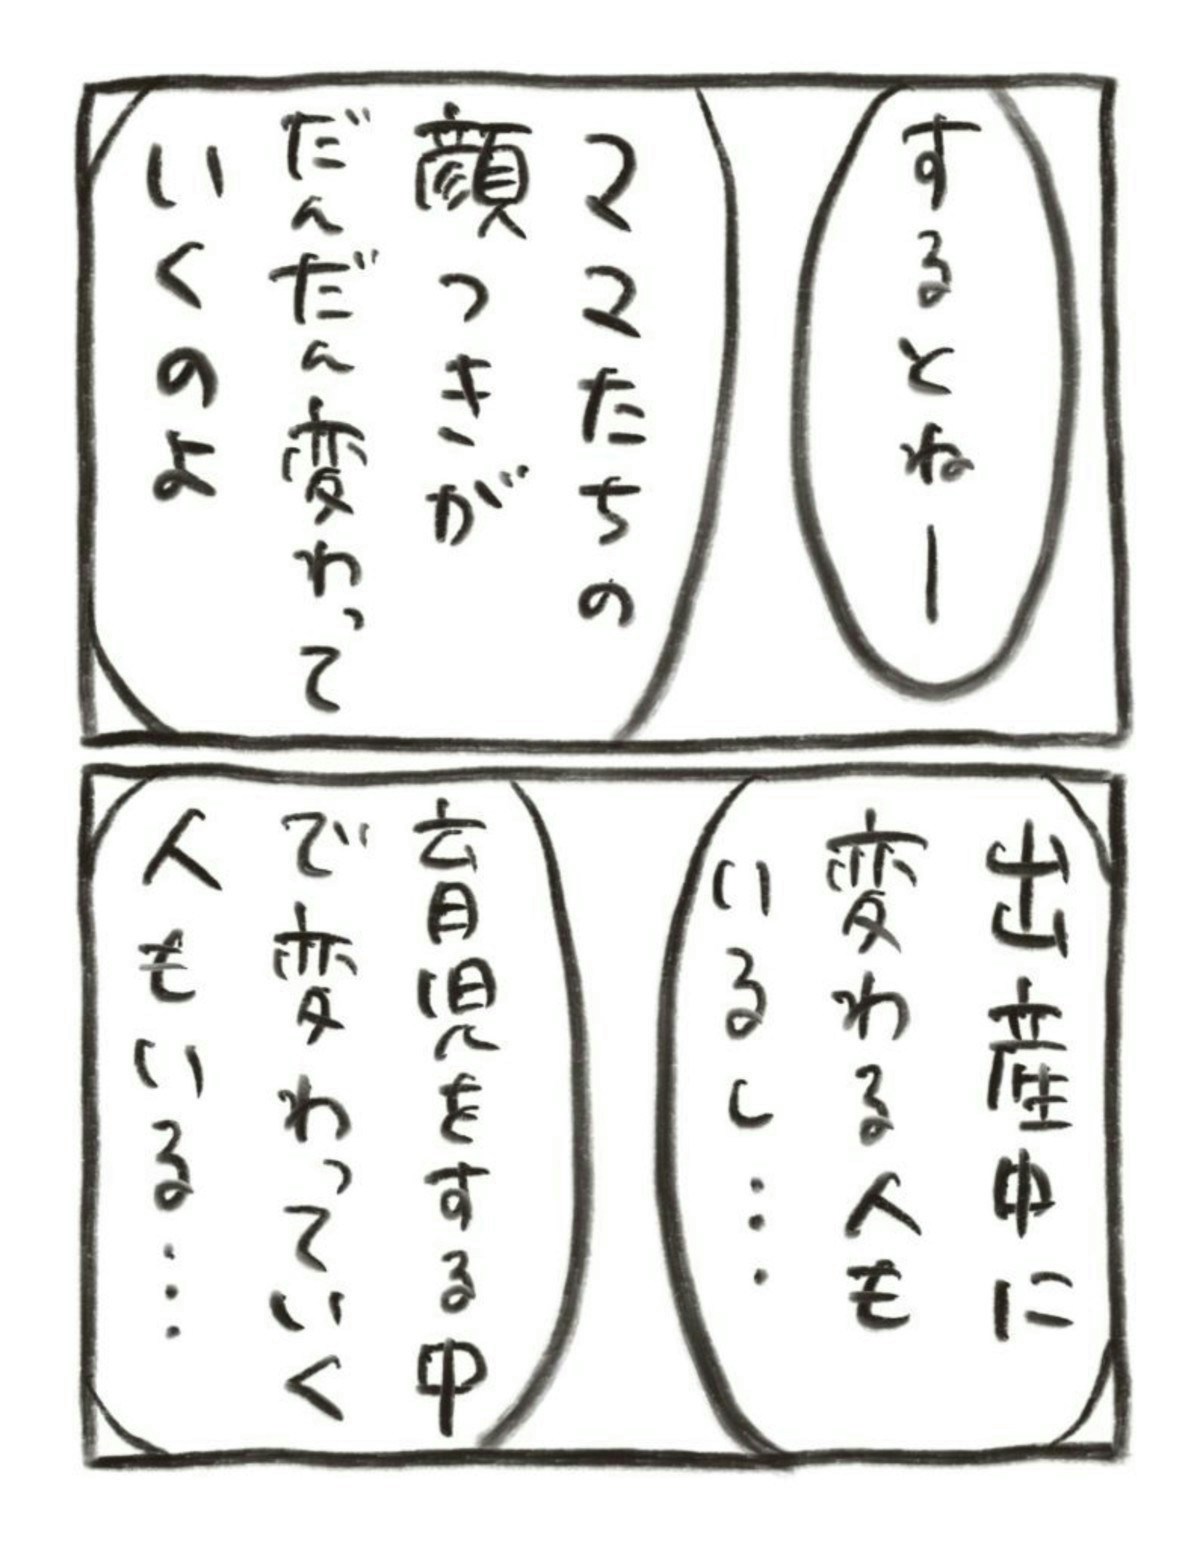 するとねー
ママたちの
顔つきが
だんだん変わって
いくのよ
出産中に
変わる人も
いるし…
育児をする中
で変わっていく
人もいる…